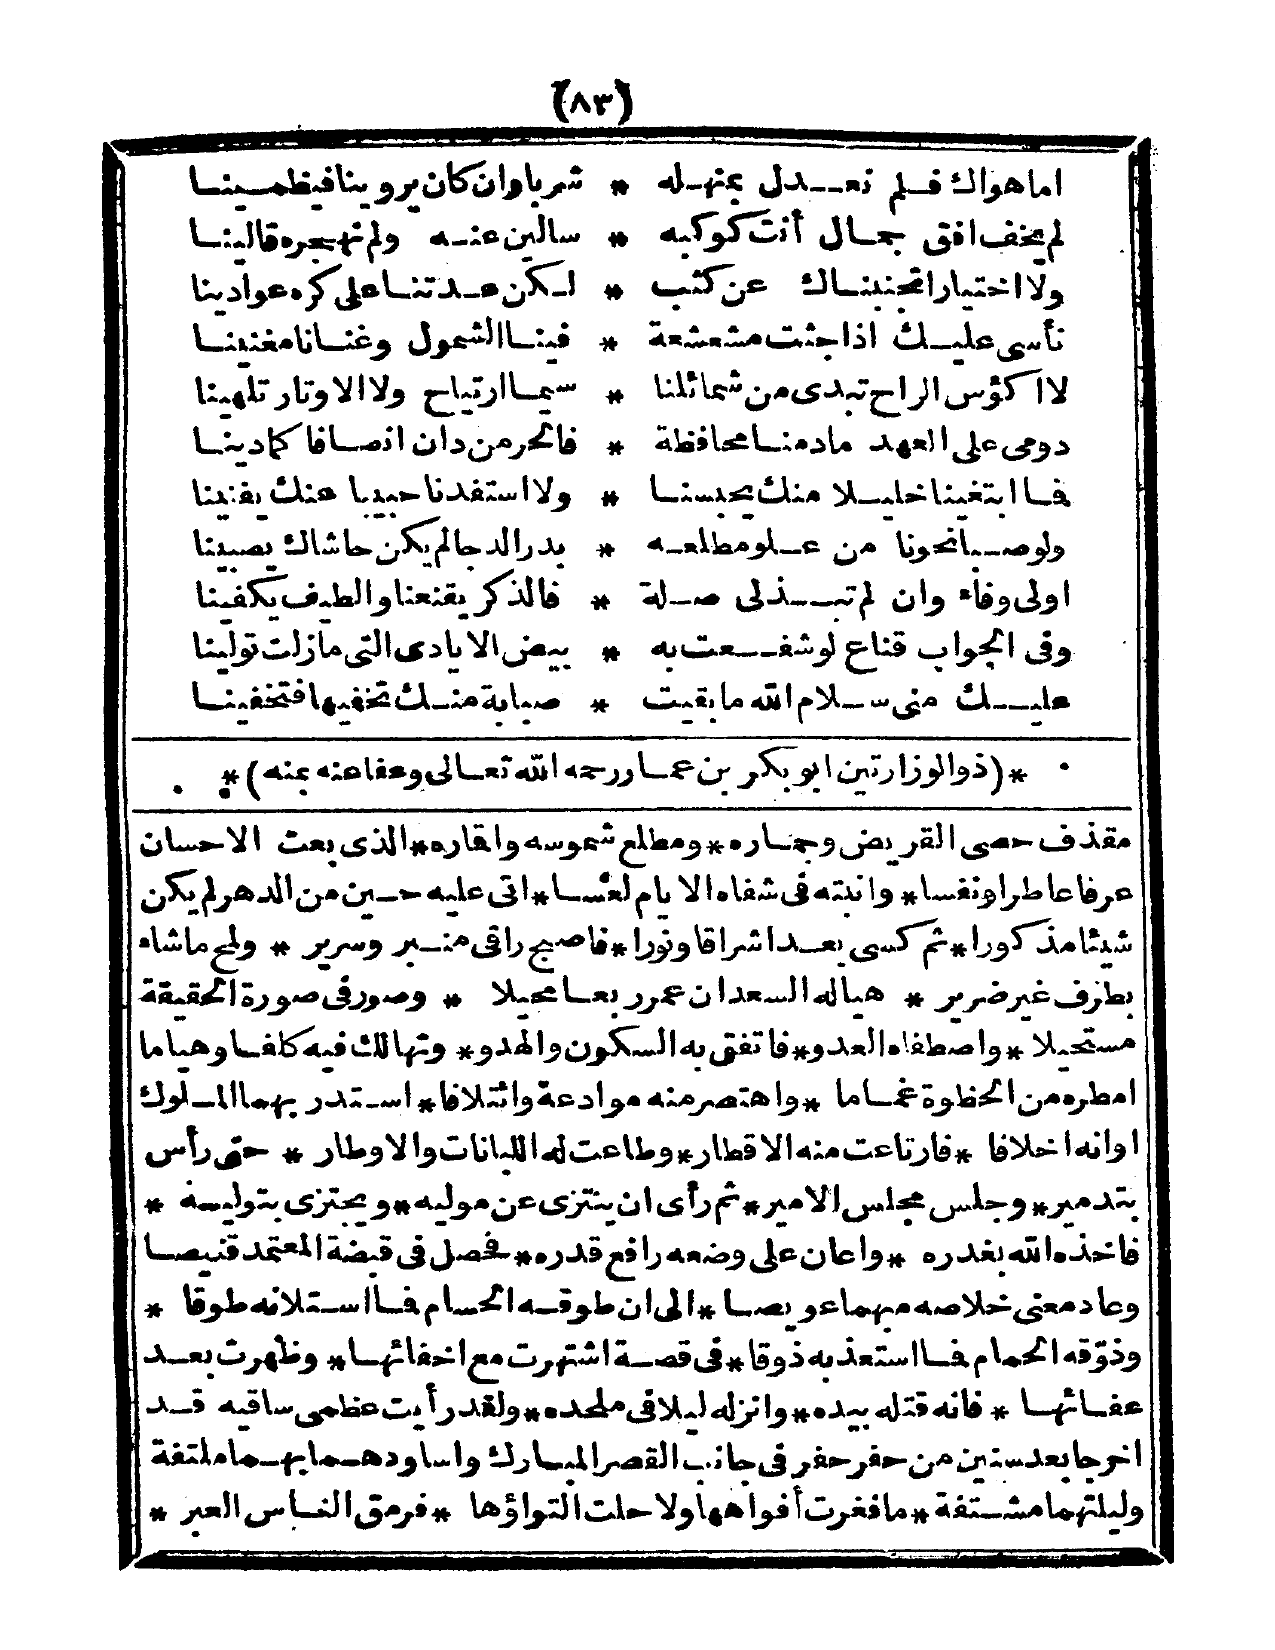 (٨٣)
اما هواك فلم نعدل بمنهله * شربا وان كان يروينا فيظمينا
لم يخف افق جمال أنت كوكبه * سالين عنه ولم نهجره قالينا
ولا اختيارا تجنبناك عن كثب * لكن عدتنا على كره عوادينا
نأسى عليك اذا حثت مشعشعة * فينا الشمول وغنانا مغنينا
لا اكؤس الراح تبدى من شمائلنا * سيما ارتياح ولا الاوتار تلهينا
دومى على العهد مادمنا محافظة * فالحر من دان انصافا كما دينا
فما ابتغينا خليلا منك يحبسنا * ولا استفدنا حبيبا عنك يغنينا
ولو صبا نحونا من علو مطلعه * بدر الدجا لم يكن حاشاك يصبينا
اولى وفاء وان لم تبذلى صلة * فالذكر يقنعنا والطيف يكفينا
وفى الجواب قناع لو شفعت به * بيض الايادى التى مازلت تولينا
عليك منى سلام الله ما بقيت * صبابة منك نخفيها فتخفينا
*(ذو الوزارتين ابو بكر بن عمار رحمه الله تعالى وعفا عنه بمنه)*
مقذف حصى القريض وجماره * ومطلع شموسه واقماره * الذى بعث الاحسان
عرفا عاطرا ونفسا * وانبته فى شفاه الايام لعسا * اتى عليه حين من الدهر لم يكن
شيئا مذكورا * ثم كسى بعد اشراقا ونورا * فاصبح راقى منبر وسرير * ولمح ما شاء
بطرف غير ضرير * هياله السعد ان عمر ربعا محيلا * وصور فى صورة الحقيقة
مستحيلا * واصطفاه العدو * فاتفق به السكون والهدو * وتهالك فيه كلفا وهياما
امطره من الحظوة غماما * واهتصر منه موادعة وائتلافا * استدر بهما الملوك
اوانه اخلافا * فارتاعت منه الاقطار * وطاعت له اللبانات والاوطار * حتى رأس
بتدمير * وجلس مجلس الامير * ثم رأى ان ينتزى عن موليه * ويجتزى بتوليه *
فاخذه الله بغدره * واعان على وضعه رافع قدره * فحصل فى قبضة المعتمد قنيصا
وعاد معنى خلاصه مبهما عويصا * الى ان طوقه الحسام فما استلانه طوقا *
وذوّقه الحمام فما استعذب به ذوقا * فى قصة اشتهرت مع اخفائها * وظهرت بعد
عفائها * فانه قتله بيده * وانزله ليلا فى ملحده * ولقد رأيت عظمى ساقيه قد
اخرجا بعد سنين من حفر حفر فى جانب القصر المبارك واساودهما بهما ملتفة
ولبلتهما مشتفة * ما فغرت أفواهها ولا حلت التواؤها * فرمق الناس العبر *